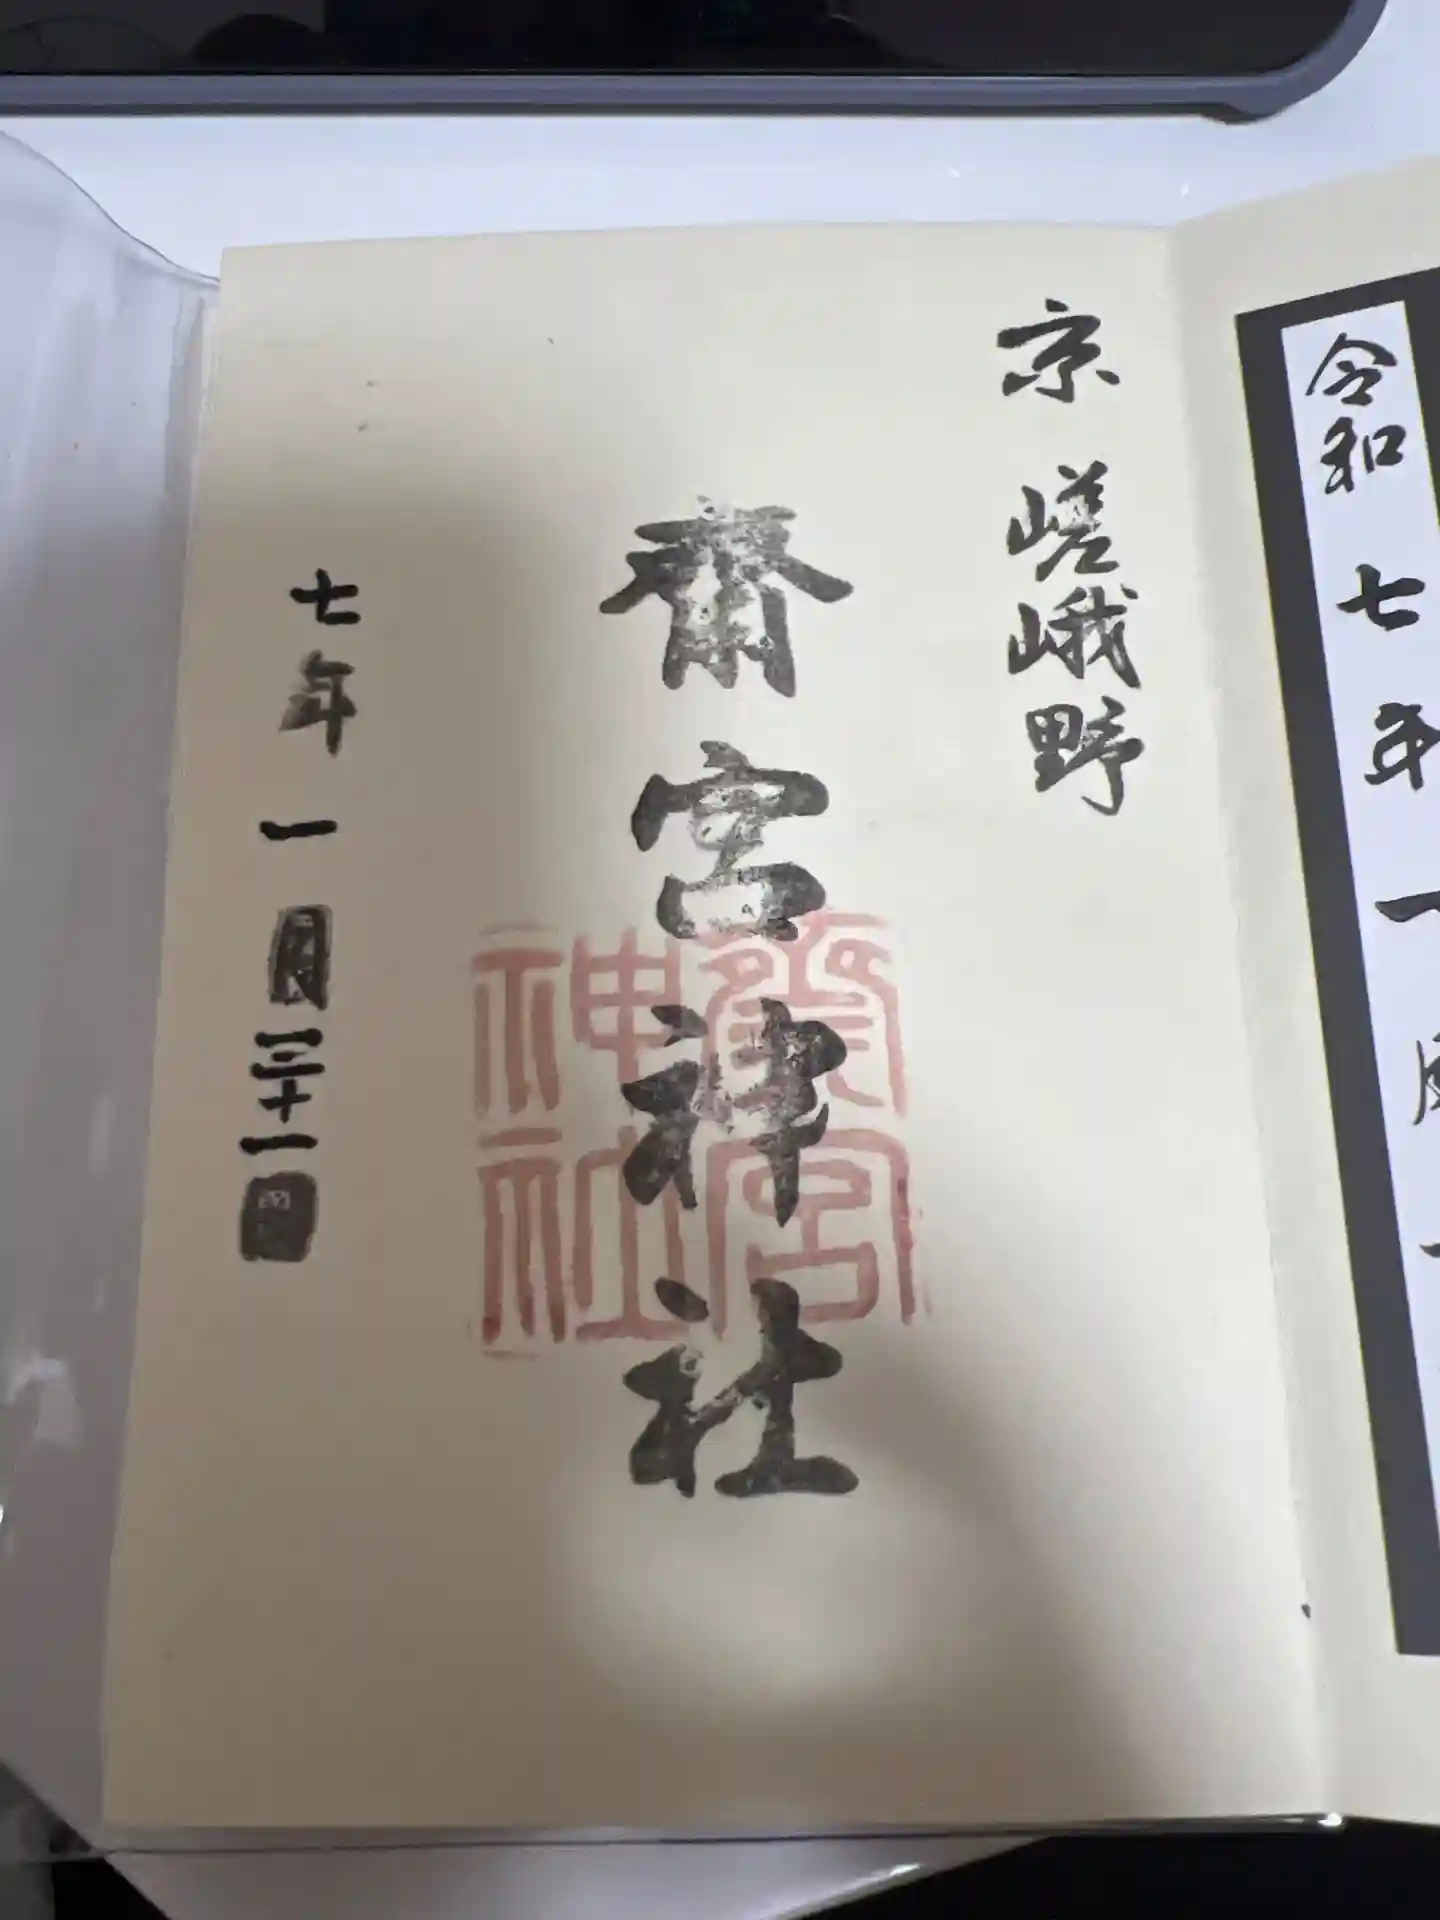 令和七年
京 嵯峨野
斎宮神社
斎宮
神社
七年一月三十一日